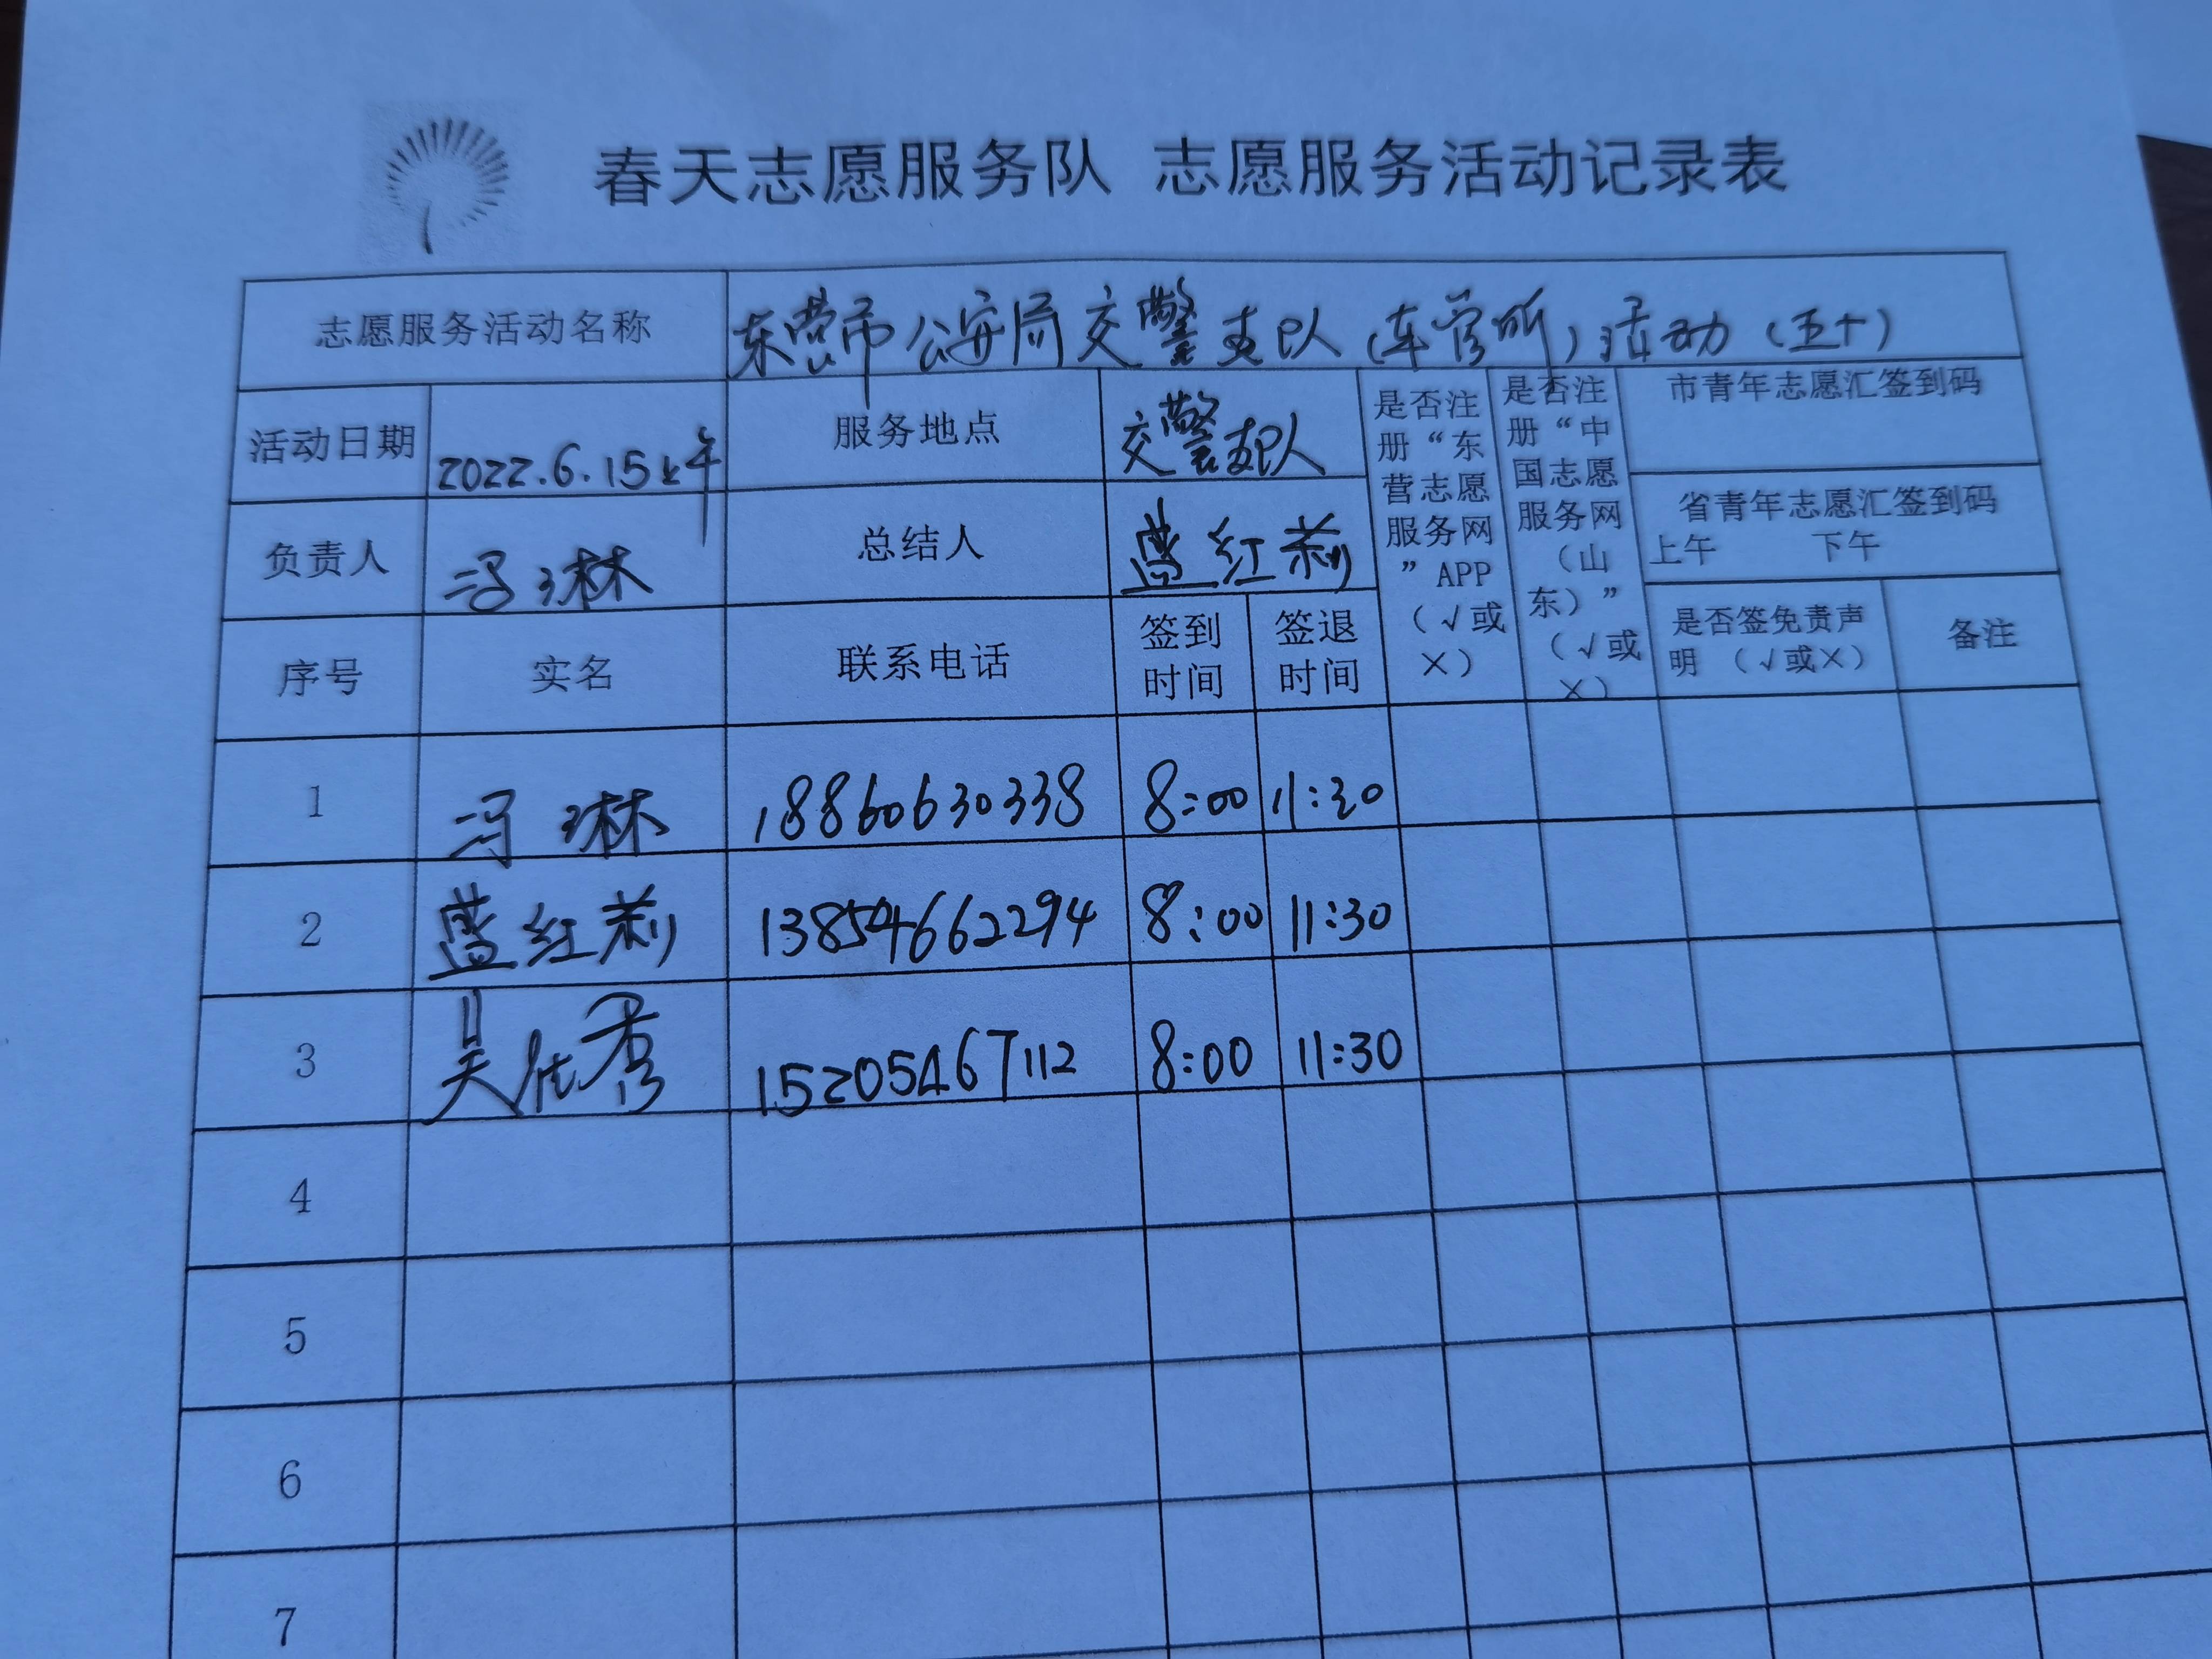 春天志愿服务队 志愿服务活动记录表
志愿服务活动名称 东营市公安局交警支队(车管所)活动(五十)
活动日期 2022.6.15上午 服务地点 交警支队
负责人 冯琳 总结人 蓝红莉
是否注
册“东
营志愿
服务网
”APP
(√或
×)
是否注
册“中
国志愿
服务网
(山
东)”
(√或
×)
市青年志愿汇签到码
省青年志愿汇签到码
上午 下午
序号 实名 联系电话
签到
时间
签退
时间
是否签免责声
明 (√或×)
备注
1 冯琳 18860630338 8:00 11:30
2 蓝红莉 13854662294 8:00 11:30
3 吴 秀 15205467112 8:00 11:30
4
5
6
7